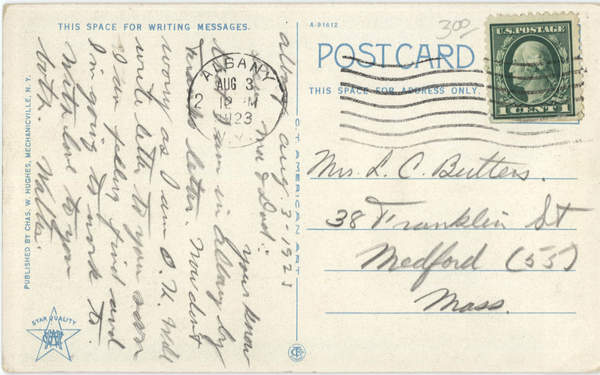 THIS SPACE FOR WRITING MESSAGES.
A-91612
POSTCARD
THIS SPACE FOR ADDRESS ONLY.
300
U.S. POSTAGE
1 CENT 1
ALBANY
AUG 3
2 12 M
1923
N.Y.
Albany Aug. 3-1923
Dear Ma & Dad:
You know
I am in Albany by
this letter. Now don't
worry as I am O.K. Will
write letter to you soon
I am feeling good and
I'm going to work to.
With love to you
both. Walter.
Mrs. L. C. Butters.
38 Franklin St
Medford (55)
Mass.
PUBLISHED BY CHAS. W. HUGHES, MECHANICVILLE, N.Y.
AMERICAN ART
STAR QUALITY